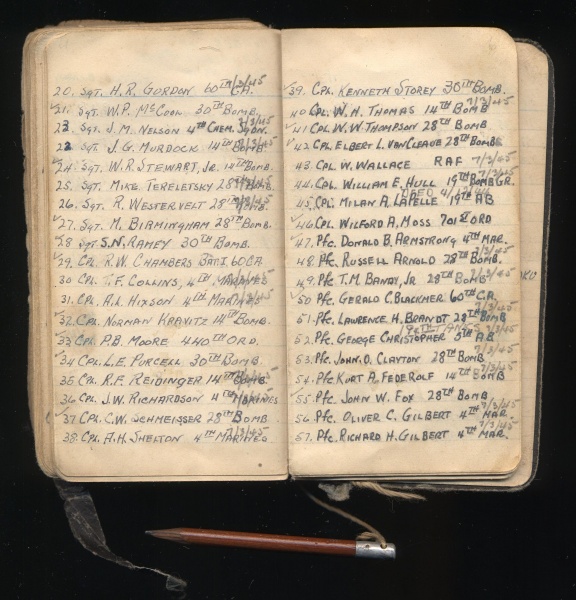 20. Sgt. H.R. GORDON 60TH CA. 7/3/45
21. Sgt. W.P. McCOOL 30TH BOMB.
22. Sgt. J.M. NELSON 4TH CHEM. SQDN. 7/3/45
23. Sgt. J.G. MURDOCK 14TH BOMB. 7/3/45
24. Sgt. W.R. STEWART, JR. 14TH BOMB.
25. Sgt. MIKE TERELETSKY 28TH BOMB. 7/3/45
26. Sgt. R. WESTERVELT 28TH BOMB. 7/3/45
27. Sgt. M. BIRMINGHAM 28TH BOMB.
28. Sgt S.N. RAMEY 30TH BOMB.
29. CPL. R.W. CHAMBERS 60CA
30 CPL. T.F. COLLINS, 4TH MARINES 7/3/45
31. CPL. A.L. HIXSON 4TH MARINES 7/3/45
32. CPL. NORMAN KRAVITZ 14TH BOMB.
33. CPL. P.B. MOORE 440TH ORD.
34. CPL. L.E. PURCELL 30TH BOMB.
35 CPL. R.F. REIDINGER 14TH BOMB. 7/3/45
36 CPL. J.W. RICHARDSON 4TH MARINES 7/3/45
37. CPL. C.W. SCHMEISSER 28TH BOMB.
38. CPL. A.H. SHELTON 4TH MARINES 7/3/45
39. CPL. KENNETH STOREY 30TH BOMB.
40 CPL. W.H. THOMAS 14TH BOMB 7/3/45
41 CPL. W.W. THOMPSON 28TH BOMB
42 CPL. ELBERT L. VANCLEAVE 28TH BOMB.
43. CPL W. WALLACE RAF 7/3/45
44. CPL. WILLIAM E. HULL 19TH BOMB GR. 7/3/45
45. CPL. MILAN A. LAPELLE 19TH AB DIED
46 CPL. WILFORD A. MOSS 701ST ORD
47. Pfc. DONALD B. ARMSTRONG 4TH MAR.
48. Pfc RUSSELL ARNOLD 28TH BOMB. 7/3/45
49. Pfc T.M. BANDY, JR 28TH BOMB. 7/3/45
50 Pfc. GERALD C. BLACKMER 60TH CA.
51. Pfc. LAWRENCE H. BRANDT 28TH BOMB 7/3/45
52. Pfc. GEORGE CHRISTOPHER 5TH AB 7/3/45
53. Pfc. JOHN. O. CLAYTON 28TH BOMB. 7/3/45
54. Pfc KURT A. FEDEROLF 14TH BOMB
55. Pfc. JOHN W. FOX 28TH BOMB.
56. Pfc. OLIVER C. GILBERT 4TH MAR. 7/3/45
57. Pfc. RICHARD H. GILBERT 4TH MAR. 7/3/45